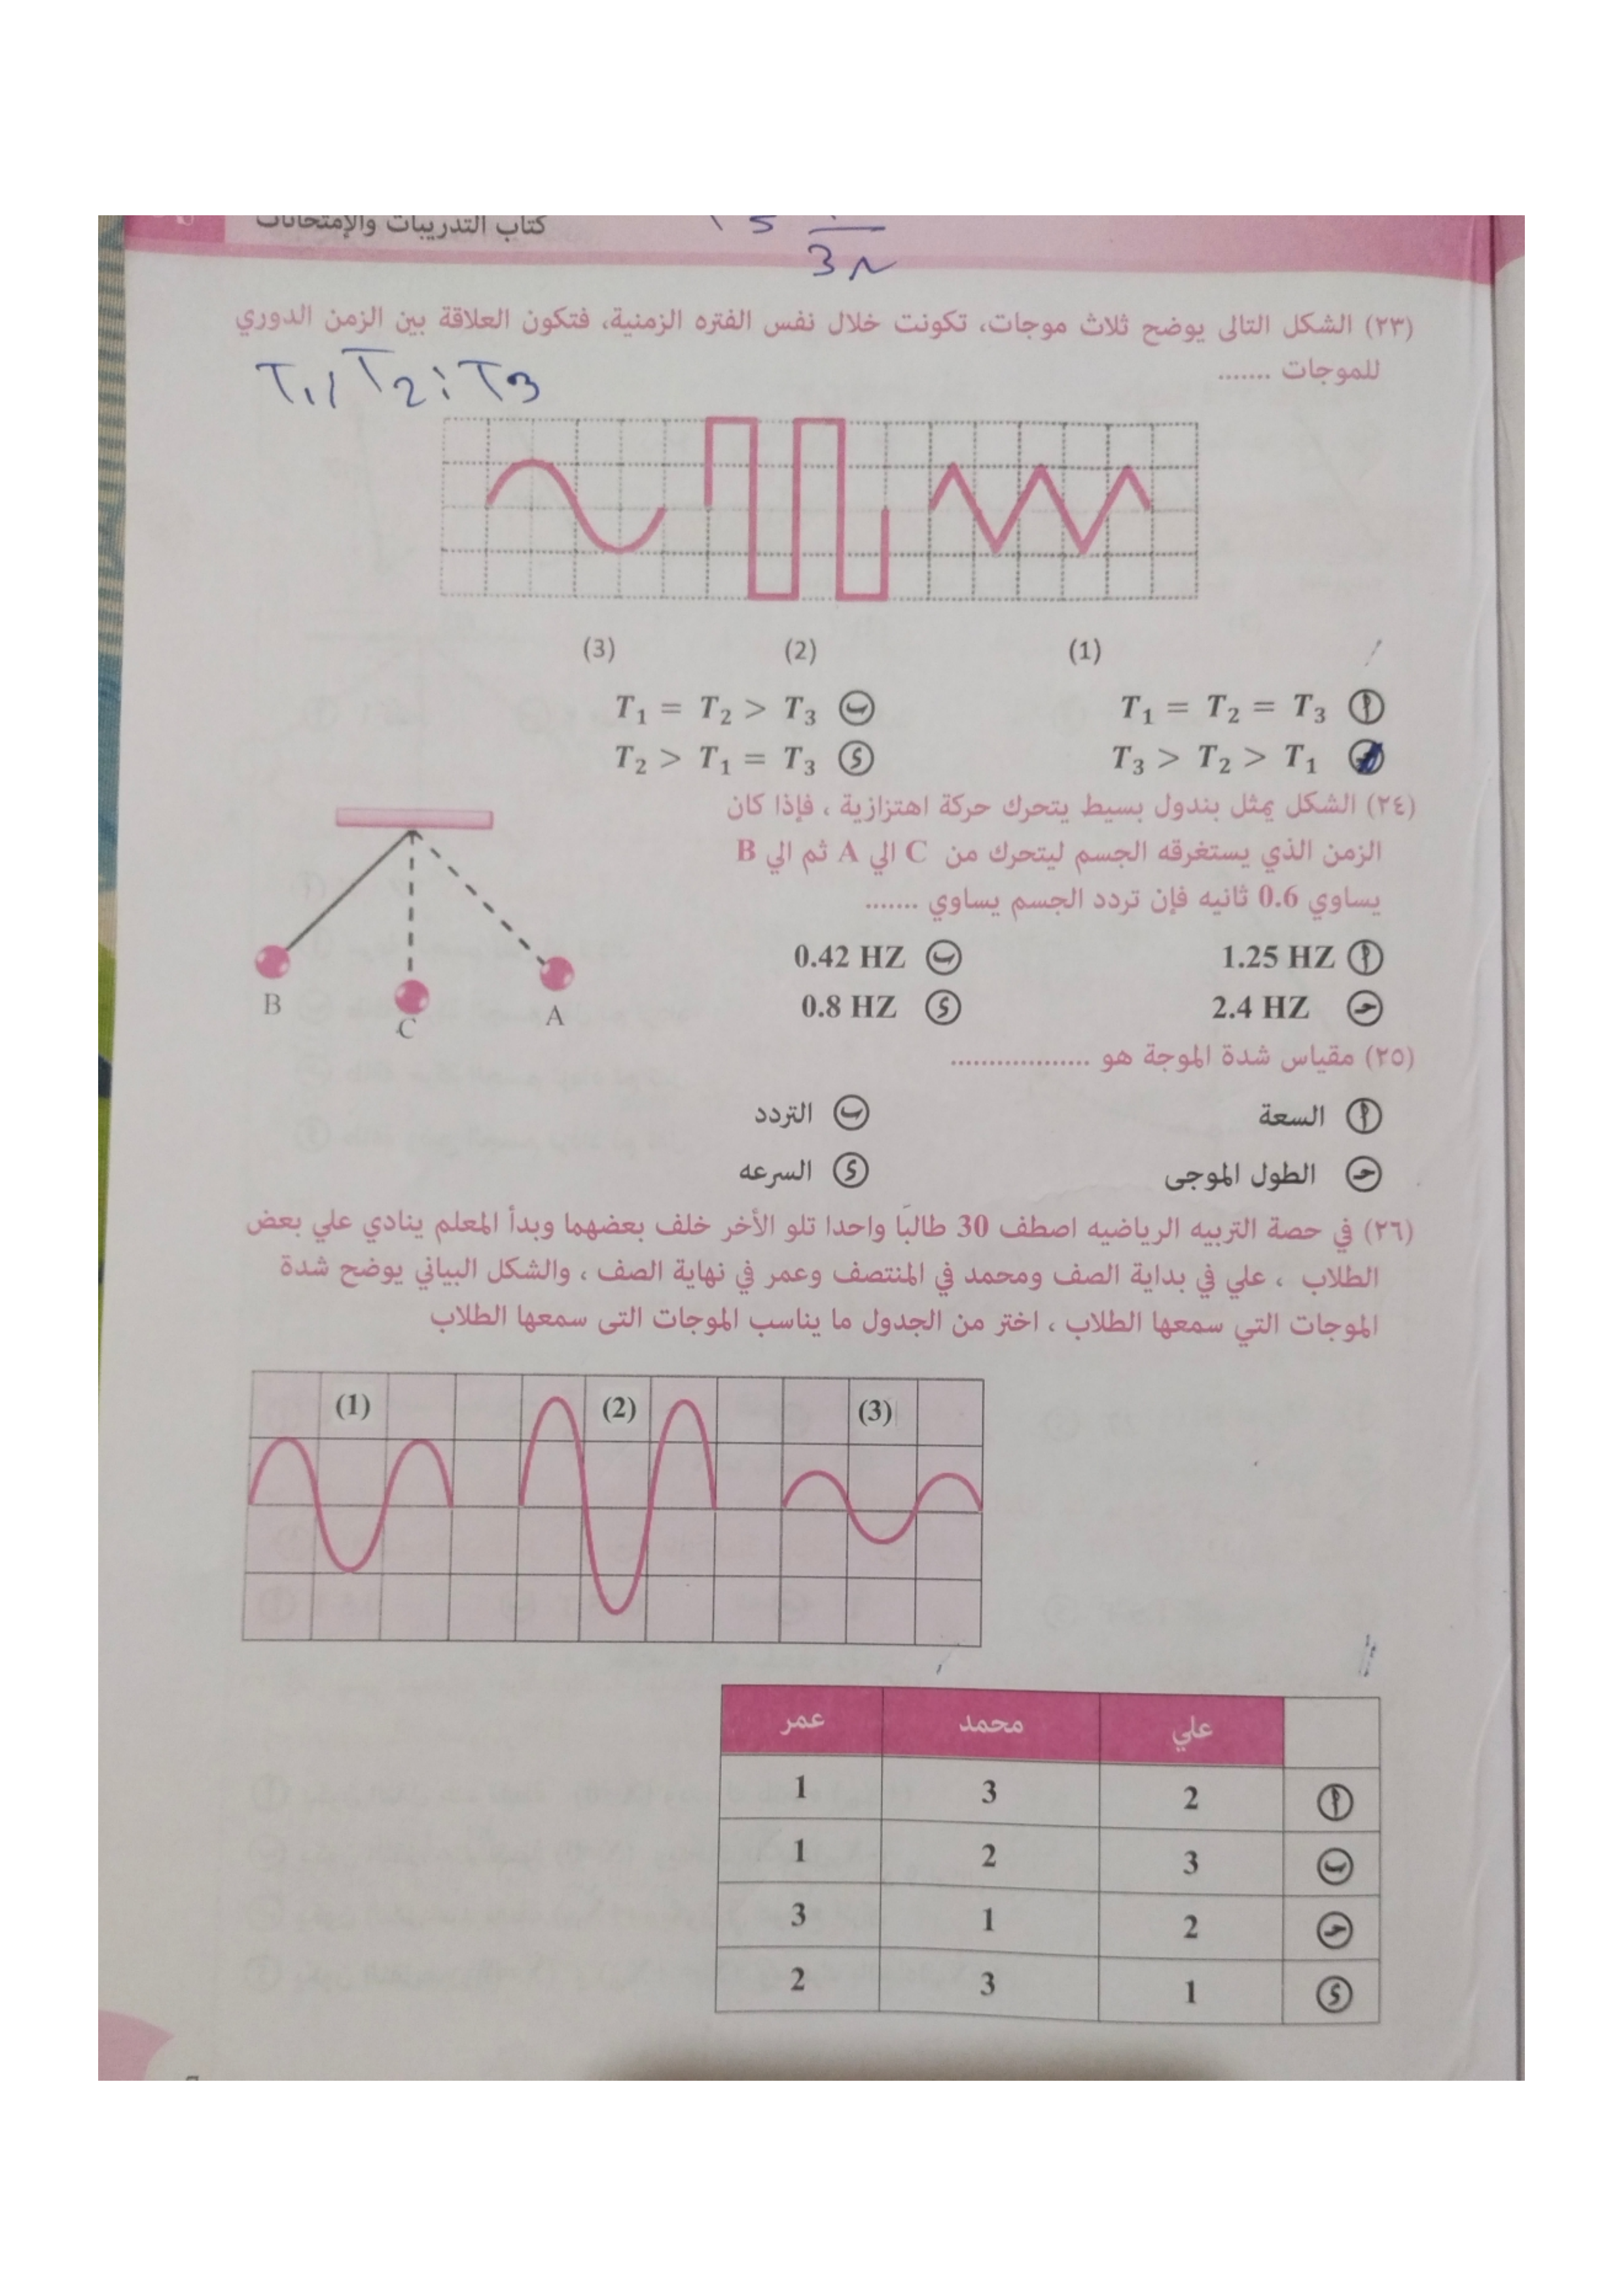 كتاب التدريبات والإمتحانات
3N
(٢٣) الشكل التالى يوضح ثلاث موجات، تكونت خلال نفس الفتره الزمنية، فتكون العلاقة بين الزمن الدوري
للموجات .......
T1, T2, T3
(3) (2) (1)
أ T1 = T2 = T3 ب T1 = T2 > T3
ج T3 > T2 > T1 د T2 > T1 = T3
(٢٤) الشكل يمثل بندول بسيط يتحرك حركة اهتزازية ، فإذا كان
الزمن الذي يستغرقه الجسم ليتحرك من C الي A ثم الي B
يساوي 0.6 ثانيه فإن تردد الجسم يساوي .......
أ 1.25 HZ ب 0.42 HZ
ج 2.4 HZ د 0.8 HZ
B C A
(٢٥) مقياس شدة الموجة هو ..................
أ السعة ب التردد
ج الطول الموجى د السرعه
(٢٦) في حصة التربيه الرياضيه اصطف 30 طالبًا واحدا تلو الأخر خلف بعضهما وبدأ المعلم ينادي علي بعض
الطلاب ، علي في بداية الصف ومحمد في المنتصف وعمر في نهاية الصف ، والشكل البياني يوضح شدة
الموجات التي سمعها الطلاب ، اختر من الجدول ما يناسب الموجات التى سمعها الطلاب
(1) (2) (3)
علي محمد عمر
أ 2 3 1
ب 3 2 1
ج 2 1 3
د 1 3 2